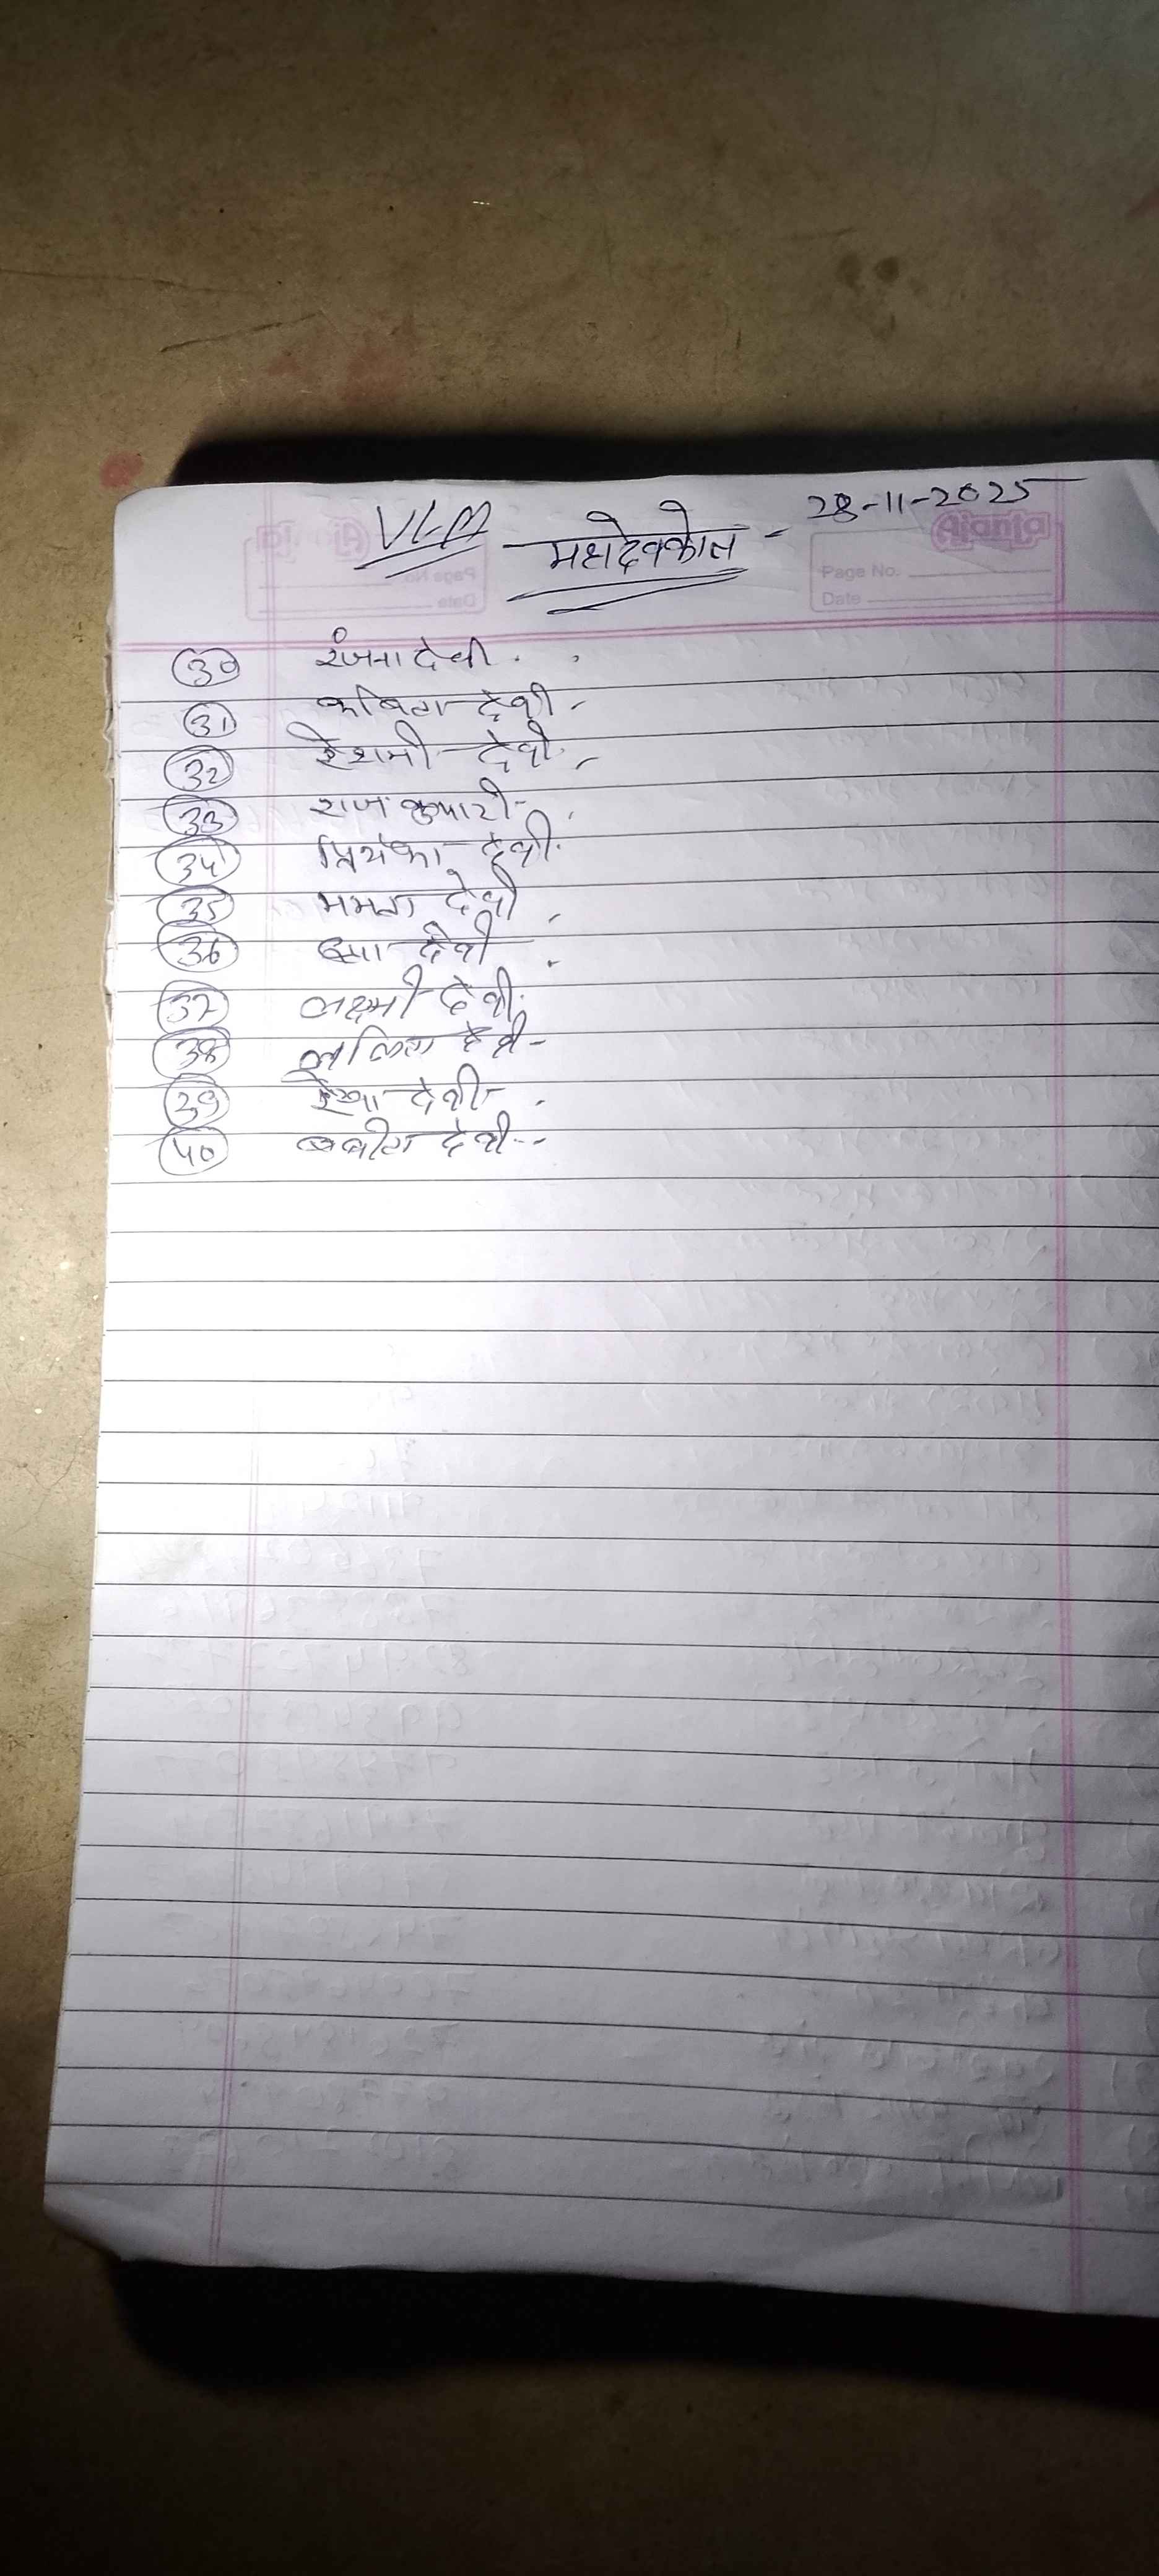 VLM महादेवकोल - 28-11-2025
Ajanta
Page No.
Date
30 रंजना देवी
31 कबिता देवी
32 रेशमी देवी
33 राज कुमारी
34 प्रियंका देवी
35 ममता देवी
36 देवी
37 लक्ष्मी देवी
38 ललिता देवी
39 रेखा देवी
40 बबीता देवी